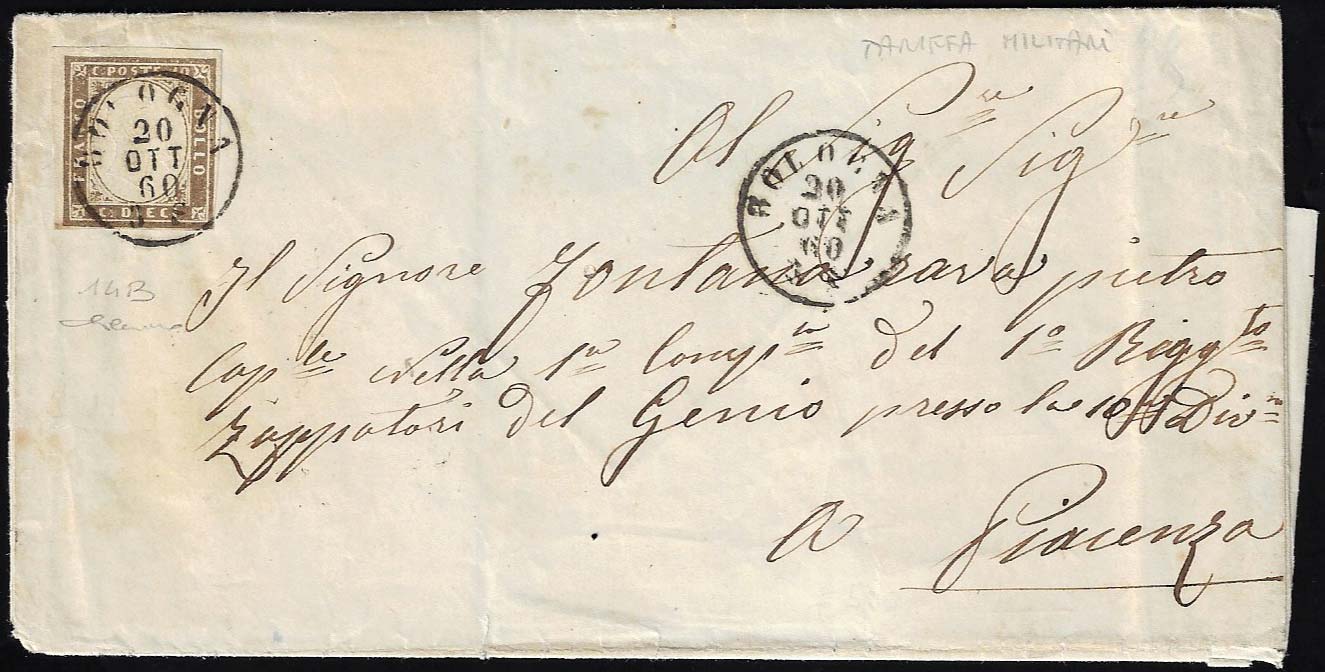 TARIFFA MILITARI
C. POSTE 10
FRANCO
BOLLO
C. DIECI
BOLOGNA
20
OTT
60
BOLOGNA
20
OTT
60
Al Sig.re Sig.re
Il Signore Fontana rava pietro
Cap.le nella 1a Comp.ia del 1o Regg.to
Zappatori del Genio presso la 10 Div.ne
14B
A Piacenza